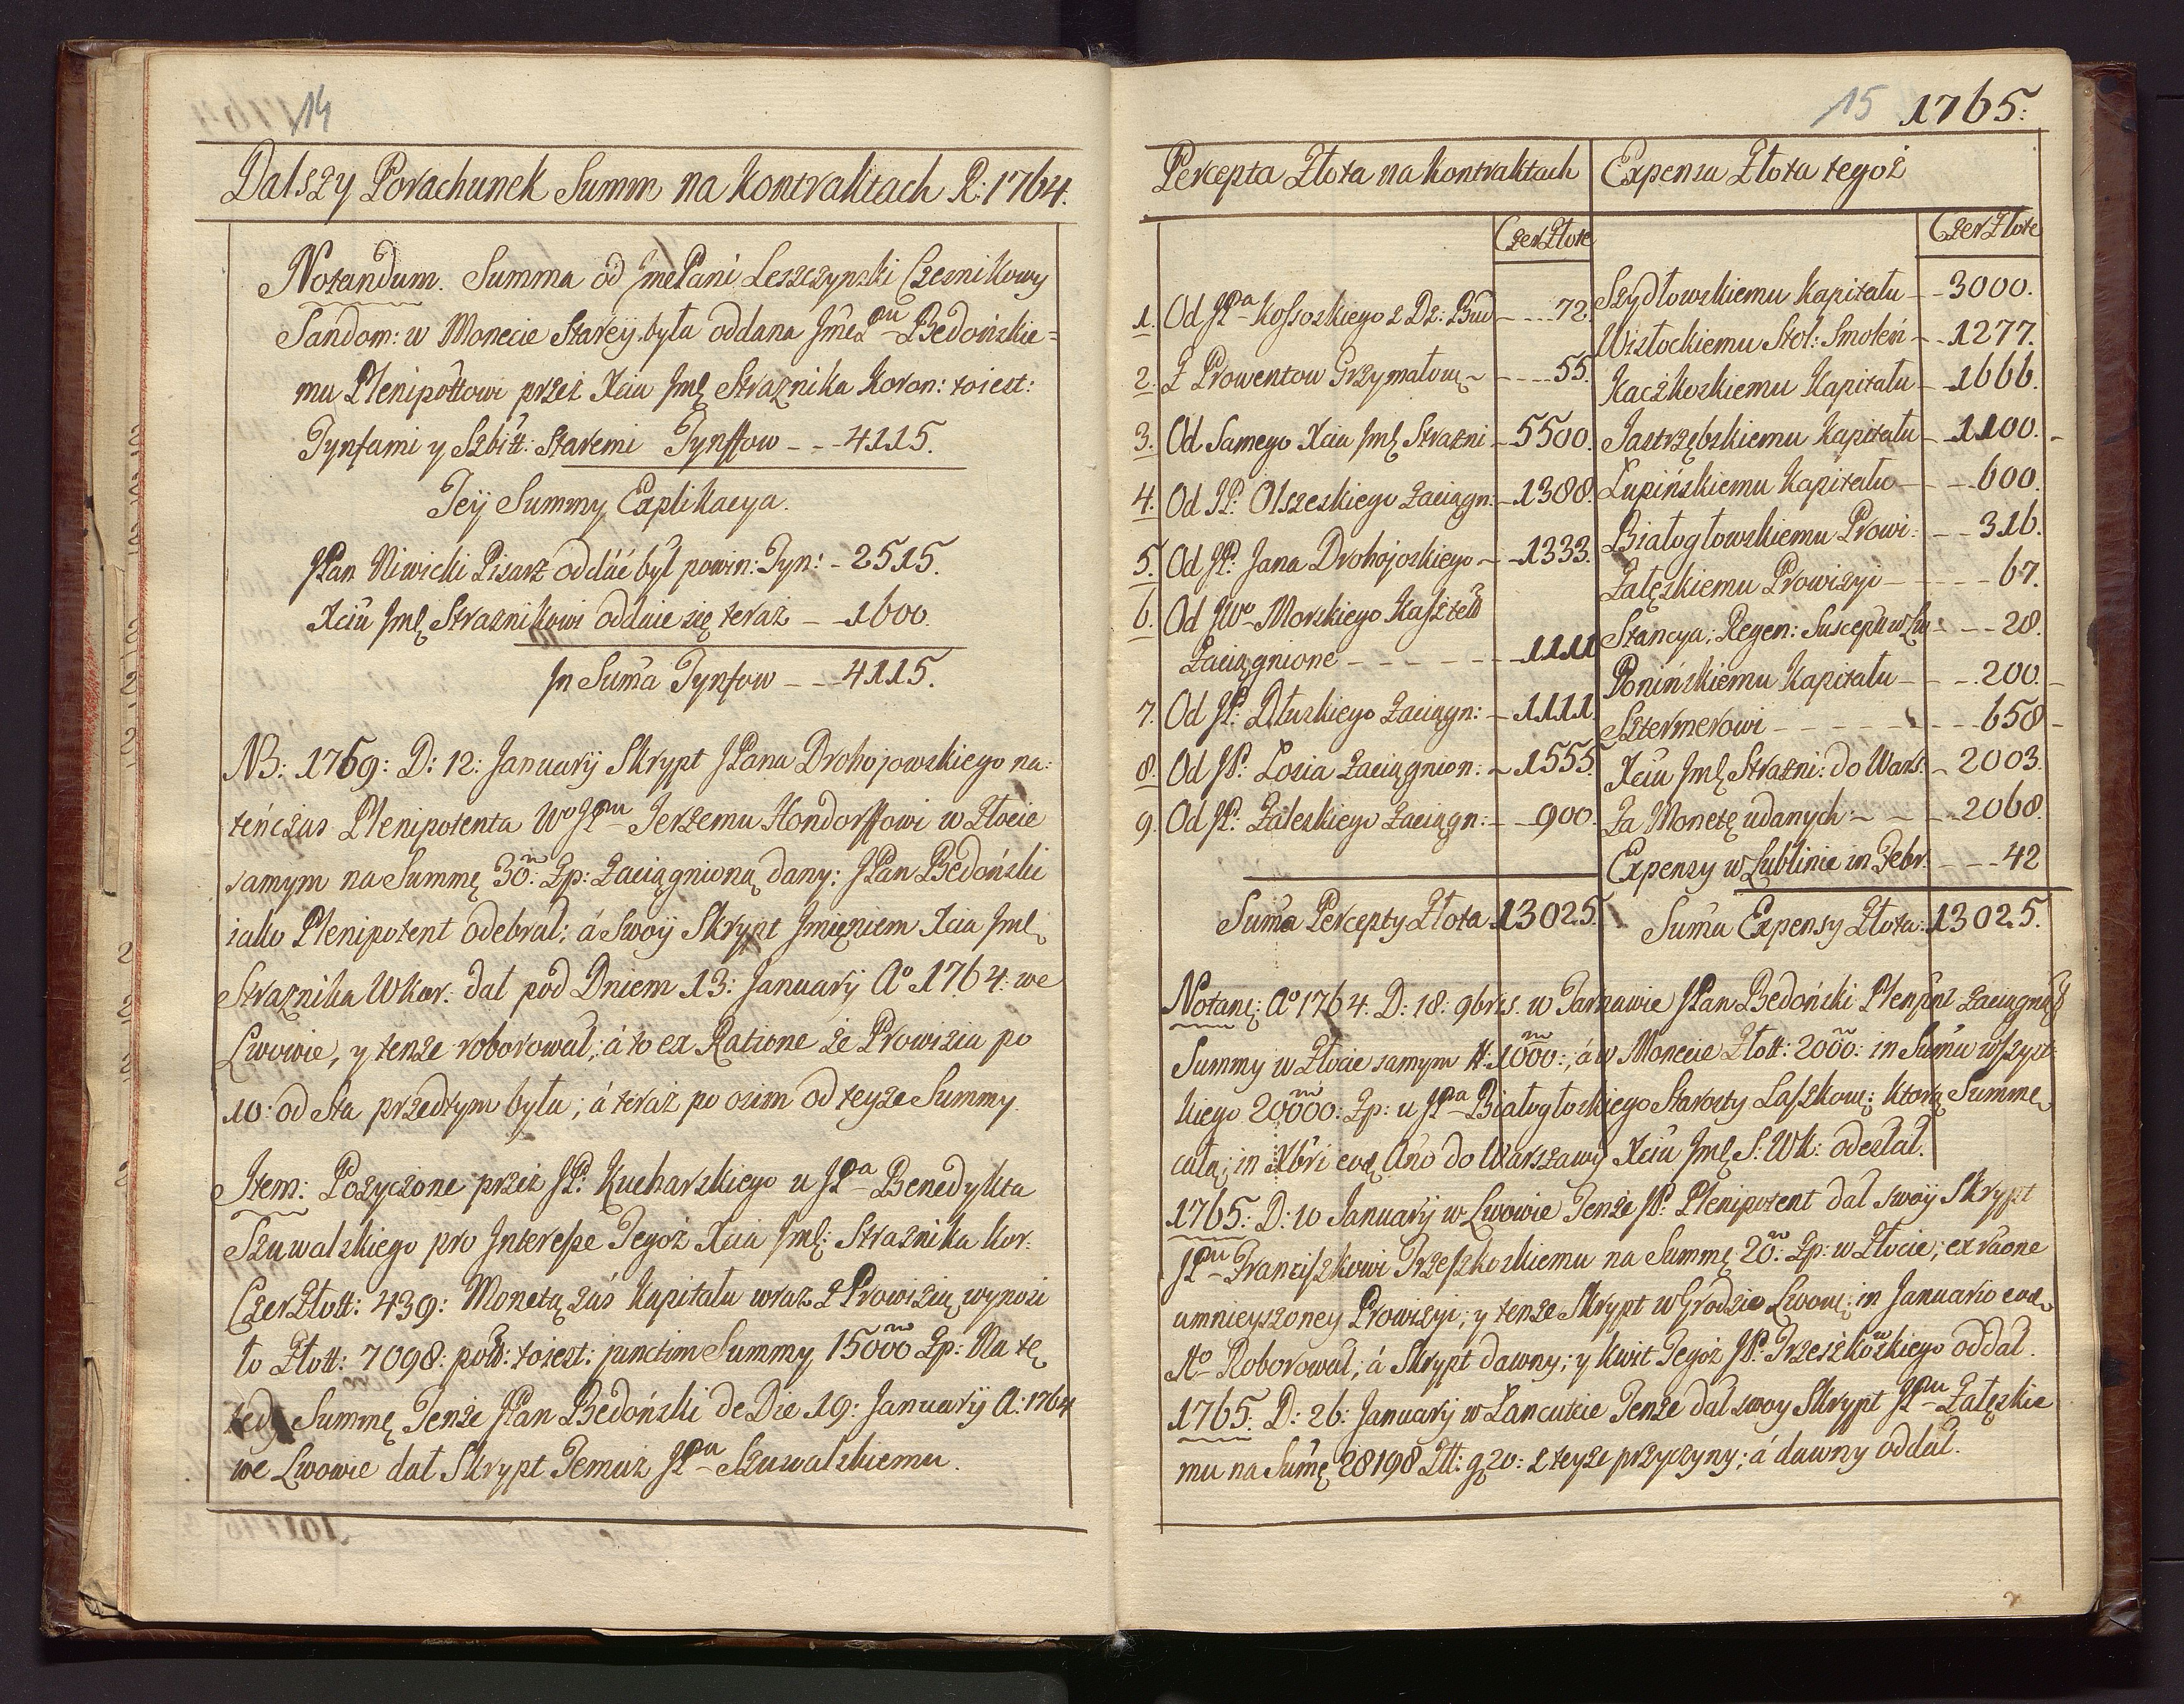 14
Dalszy Porachunek Summ na Kontraktach R: 1764.
Notandum. Summa od JmePani Leszczynski Czesnikowy
Sandom: w Monecie Starey była oddana JmęPnu Bedońskie-
mu Plenipottowi przez Xcia Jmę Straznika Koron: toiest:
Tynfami y Szbitt: Staremi Tynffow - - 4115.
Teÿ Summy Explikacya.
JPan Niwicki Pisarz oddać był powin: Tyn: - 2515.
Xciu Jmę Straznikowi oddaie się teraz - - 1600.
Jn Suma Tynfow - - 4115.
NB: 1769: D: 12: Januarÿ Skrypt JPana Drohojowskiego na-
tenczas Plenipotenta Wo JPnu Jerzemu Hondorffowi w Złocie
samym na Summę 30m: Zp: Zaciągnioną dany: JPan Bedoński
iako Plenipotent odebrał; á Swoÿ Skrypt Jmięniem Xcia Jmę
Straznika WKor: dał pod Dniem 13: Januarÿ Ao 1764: we
Lwowie, y tenze roborował; á to ex Ratione że Prowizia po
10: od Sta przedtym była; á teraz po osim od teyze Summy.
Item: Pozyczone przez JP: Kucharskiego u JPa Benedykta
Szuwalskiego pro Jnteresse Tegoż Xcia Jmę: Straznika Kor:
CzerZłott: 439: Monetą zaś Kapitału wraz z Prowizią wynosi
to Złott: 7098: poł: toiest: junctim Summy 15000 Zp: Na tę
tedy Summę Tenże JPan Bedoński de Die 19: Januarÿ A: 1764
we Lwowie dał Skrypt Temuz JPnu Szuwalskiemu.
15 1765:
Percepta Złota na Kontraktach
CzerZłote
1. Od JPa Kossoskiego z Dz: Bud - - - 72.
2. Z Prowentow Grzymałow: - - - - 55.
3. Od Samego Xcia Jmę Strażni - 5500.
4. Od JP: Olszeskiego Zaciągn: - 1388.
5. Od JP: Jana Drohojoskiego - - 1333.
6. Od JWo Morskiego Kasztel
Zaciągnione - - - - - - - 1111
7. Od JP: Dłuskiego Zaciągn: - 1111.
8. Od JP: Łosia Zaciągnion: - 1555.
9. Od JP: Zaleskiego Zaciągn: - - 900.
Suma Percepty Złota 13025.
Expensa Złota tegoż
CzerZłote
Szydłowskiemu Kapitału - - 3000.
Wisłockiemu Stol: Smoleń - - 1277.
Kaczkoskiemu Kapitału - - 1666.
Jastrzębskiemu Kapitału - - 1100.
Łupińskiemu Kapitału - - - 600.
Białogłowskiemu Prowi: - - 316.
Załęskiemu Prowizyi - - - - - 67.
Stancya; Regen: Suscept: w Lu - - - 28.
Ponińskiemu Kapitału - - - 200.
Sztermerowi - - - - - - - 658
Xciu Jmę Strażni: do Wars: - 2003.
Za Monetę udanych - - - - 2068.
Expensy w Lublinie in Febr: - - - 42
Suma Expensy Złota: 13025.
Notan: Ao 1764. D: 18. 9bris. w Tarnawie JPan Bedoński Plenpnt zaciągnął
Summy w Złocie samym #: 1000:, á w Monecie Złott: 2000: in Sumu wszyst-
kiego 20000: Zp: u JPa Białogłoskiego Starosty Laszkow: ktorą Summę
całą; in Xbri eod Ano do Warszawy Xciu Jmę S: WK: odesłał.
1765: D: 10 Januarÿ w Lwowie Tenże JP: Plenipotent dał swoÿ Skrypt
JPnu Franciszkowi Trzeszkoskiemu na Summę 20m: Zp: w Złocie; ex raone
umnieyszoney Prowizyi; y tenże Skrypt w Grodzie Lwow: in Januario eod
Ao Roborował; á Skrypt dawny; y Kwit Tegoż JP: Trzeszkowskiego oddał.
1765: D: 26: Januarÿ w Lancucie Tenże dał swoy Skrypt JPnu Załęskie
mu na Sumę 28198 Złt: g 20: z teyże przyczyny; á dawny oddał.